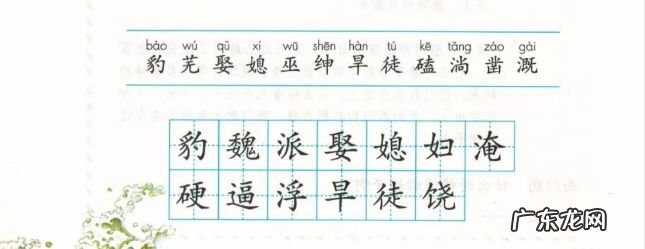 bào wú qǔ xí wū shēn hàn tú kē tǎng záo gài
豹 芜 娶 媳 巫 绅 旱 徒 磕 淌 凿 溉
豹 魏 派 娶 媳 妇 淹
硬 逼 浮 旱 徒 饶
广东龙网